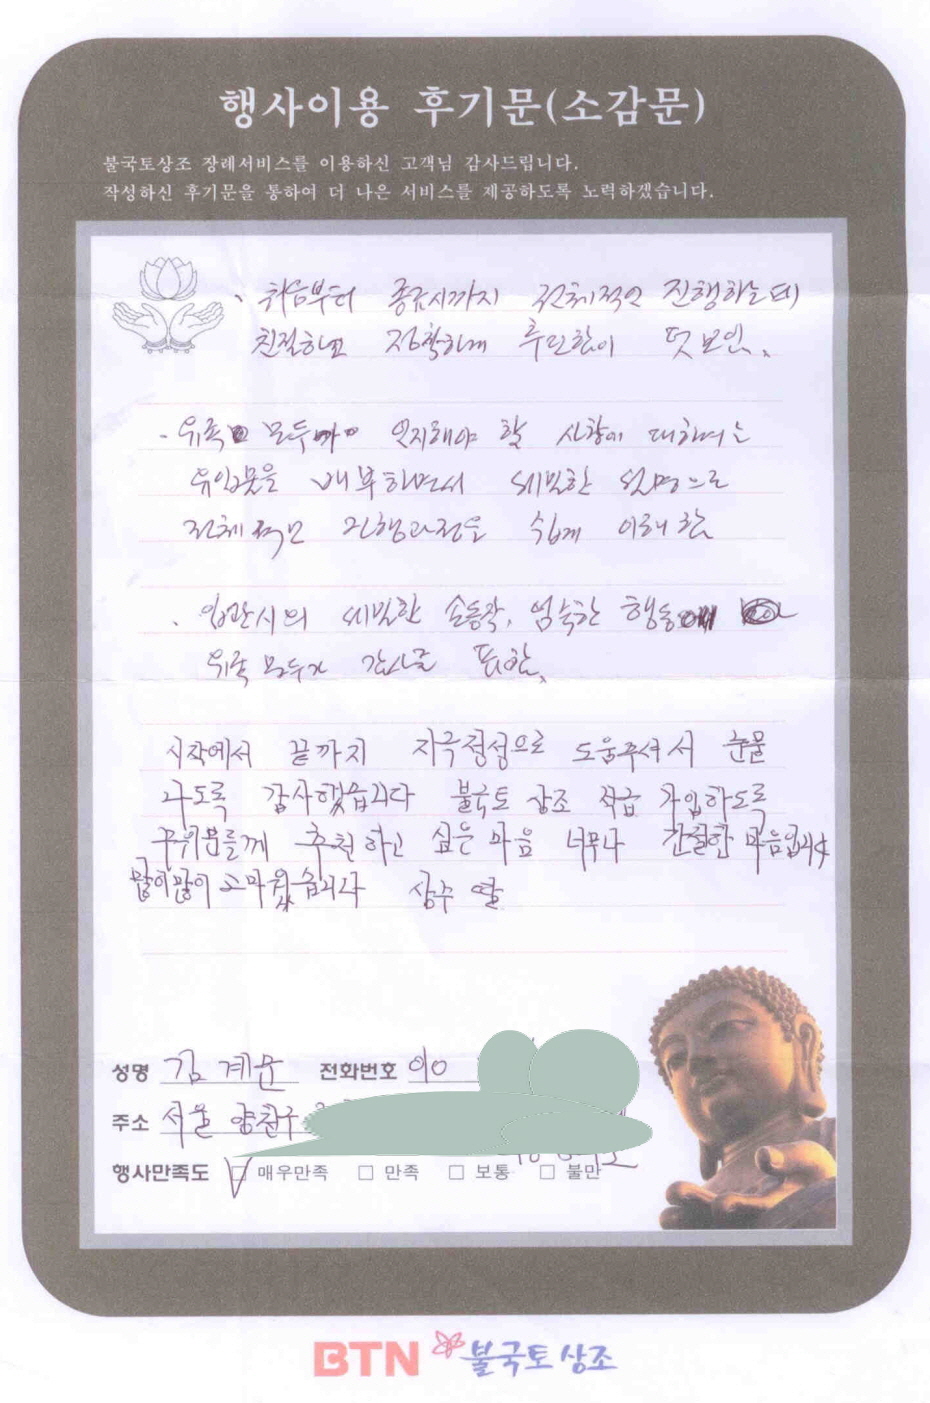 행사이용 후기문(소감문)
불국토상조 장례서비스를 이용하신 고객님 감사드립니다.
작성하신 후기문을 통하여 더 나은 서비스를 제공하도록 노력하겠습니다.
처음부터 종료시까지 전체적인 진행하는데
친절하고 정확하게 후련함이 덧보임.
- 유족 모두가 인지해야 할 사항에 대하여는
유인물을 배부하면서 세밀한 설명으로
전체적인 진행과정을 쉽게 이해함
입관시의 세밀한 손동작, 엄숙한 행동에
유족 모두가 감사를 표함.
시작에서 끝까지 지극정성으로 도움주셔서 눈물
나도록 감사했습니다 불국토 상조 적극 가입하도록
주위분들께 추천하고 싶은 마음 너무나 간절한 마음입니다
많이많이 고마웠습니다 상주 딸
성명 김계문 전화번호 010
주소 서울 양천구
행사만족도 □ 매우만족 □ 만족 □ 보통 □ 불만
BTN 불국토상조